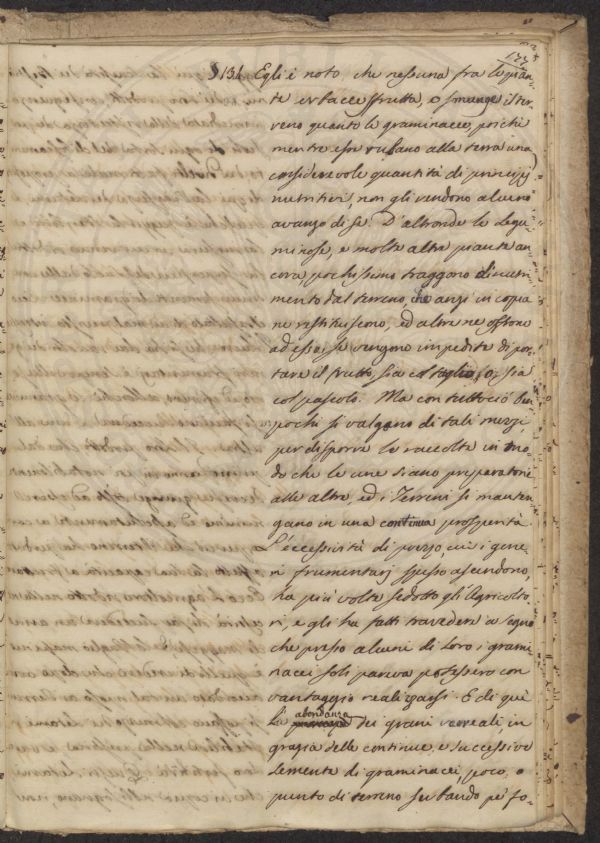 § 134. Egli è noto, che nessuna fra le pian-
te erbacee sfrutta, e smunge il ter-
reno quanto le graminacee, poichè
mentre esse rubano alla terra una
considerevole quantità di principj
nutritivi, non gli rendono alcuno
avanzo di se. D'altronde le Legu-
minose, e molte altre piante an-
cora, pochissimo traggono di nutri-
mento dal terreno, che anzi in coppia
ne restituiscono, ed altre ne offrono
ad esso, se vengono impedite di por-
tare il frutto, sia col taglio, o sia
col pascolo. Ma con tuttociò ben
pochi si valgono di tali mezzi,
per disporre le raccolte in mo-
do che le une siano preparatorie
alle altre, ed i Terreni si manten-
gano in una continua prosperità.
L'eccessività di prezzo, cui i gene-
ri frumentarj spesso ascendono,
ha più volte sedotto gli Agricolto-
ri, e gli ha fatti travedere a segno
che presso alcuni di Loro i grami-
nacei soli pareva potessero con
vantaggio realizzarsi. E di quì
La abondanza dei grani
grazia delle continue, e successive
semente di graminacei, poco, o
punto di terreno serbando pe' fo-